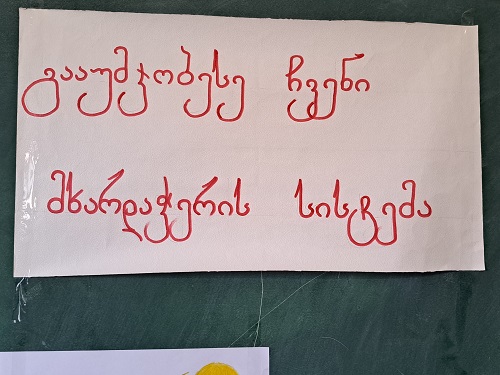 გააუმჯობესე ჩვენი
მხარდაჭერის სისტემა